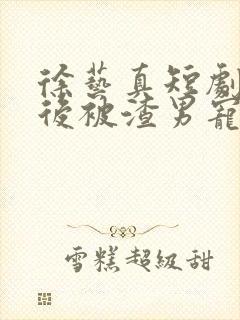 徐藝真短劇
後被渣男寵
雪糕超級甜